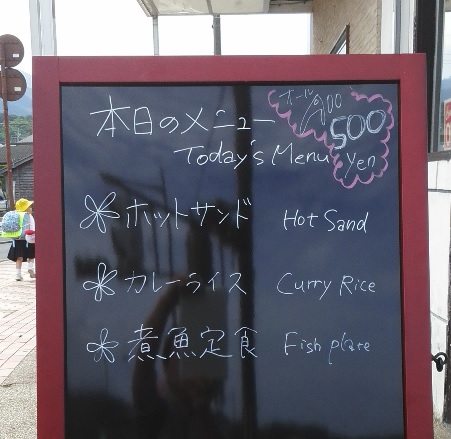 本日のメニュー
Today's Menu
オール
500
yen
ホットサンド Hot Sand
カレーライス Curry Rice
煮魚定食 Fish plate